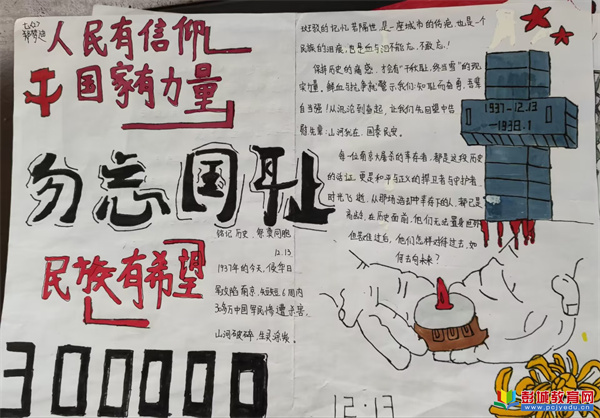 人民有信仰
国家有力量
勿忘国耻
民族有希望
铭记历史 祭奠同胞
12.13
1937年的今天，侵华日
军攻陷南京，短短6周内
30多万中国军民惨遭杀害。
山河破碎，生灵涂炭。
300000
的记忆若隔世，是一座城市的伤疤，也是一个
民族的泪痕，更是血与泪不能忘，不敢忘！
保鲜历史的痛感，才会有"雪耻，终当雪"的现
实力量。鲜血与抗争就警示我们：知耻而奋勇，吾辈
自当强！从沉沦到奋起，让我们先回望中告
慰先辈：山河犹在，国泰民安。
每一位南京大屠杀的幸存者，都是这段历史
的活证，更是和平与正义的捍卫者与守护者，
时光飞逝，从那场浩劫中幸存下的人，都已是
高龄，在历史面前，他们无法置身世外
但苦难过后，他们怎样对待过去，如
何去向未来？
1937-12.13
-1938.1
12:13
彭城教育网
www.pcjyedu.cn